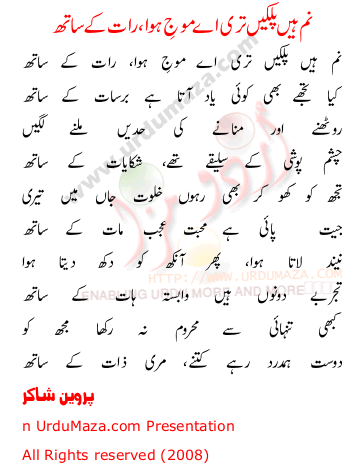 نم ہیں پلکیں تری اے موجِ ہوا، رات کے ساتھ
نم ہیں پلکیں تری اے موجِ ہوا، رات کے ساتھ
کیا تجھے بھی کوئی یاد آتا ہے برسات کے ساتھ
روٹھنے اور منانے کی حدیں ملنے لگیں
چشم پوشی کے سلیقے تھے، شکایات کے ساتھ
تجھ کو کھو کر بھی رہوں خلوت جاں میں تیری
جیت پائی ہے محبت عجب مات کے ساتھ
نیند لاتا ہوا، پھر آنکھ کو دکھ دیتا ہوا
تجربے دونوں ہیں وابستہ ہات کے ساتھ
کبھی تنہائی سے محروم نہ رکھا مجھ کو
دوست ہمدرد رہے کتنے، مری ذات کے ساتھ
پروین شاکر
n UrduMaza.com Presentation
All Rights reserved (2008)
www.urdumaza.com
اردو مزا
HTTP://WWW.URDUMAZA.COM
ENABLING URDU MORE AND MORE